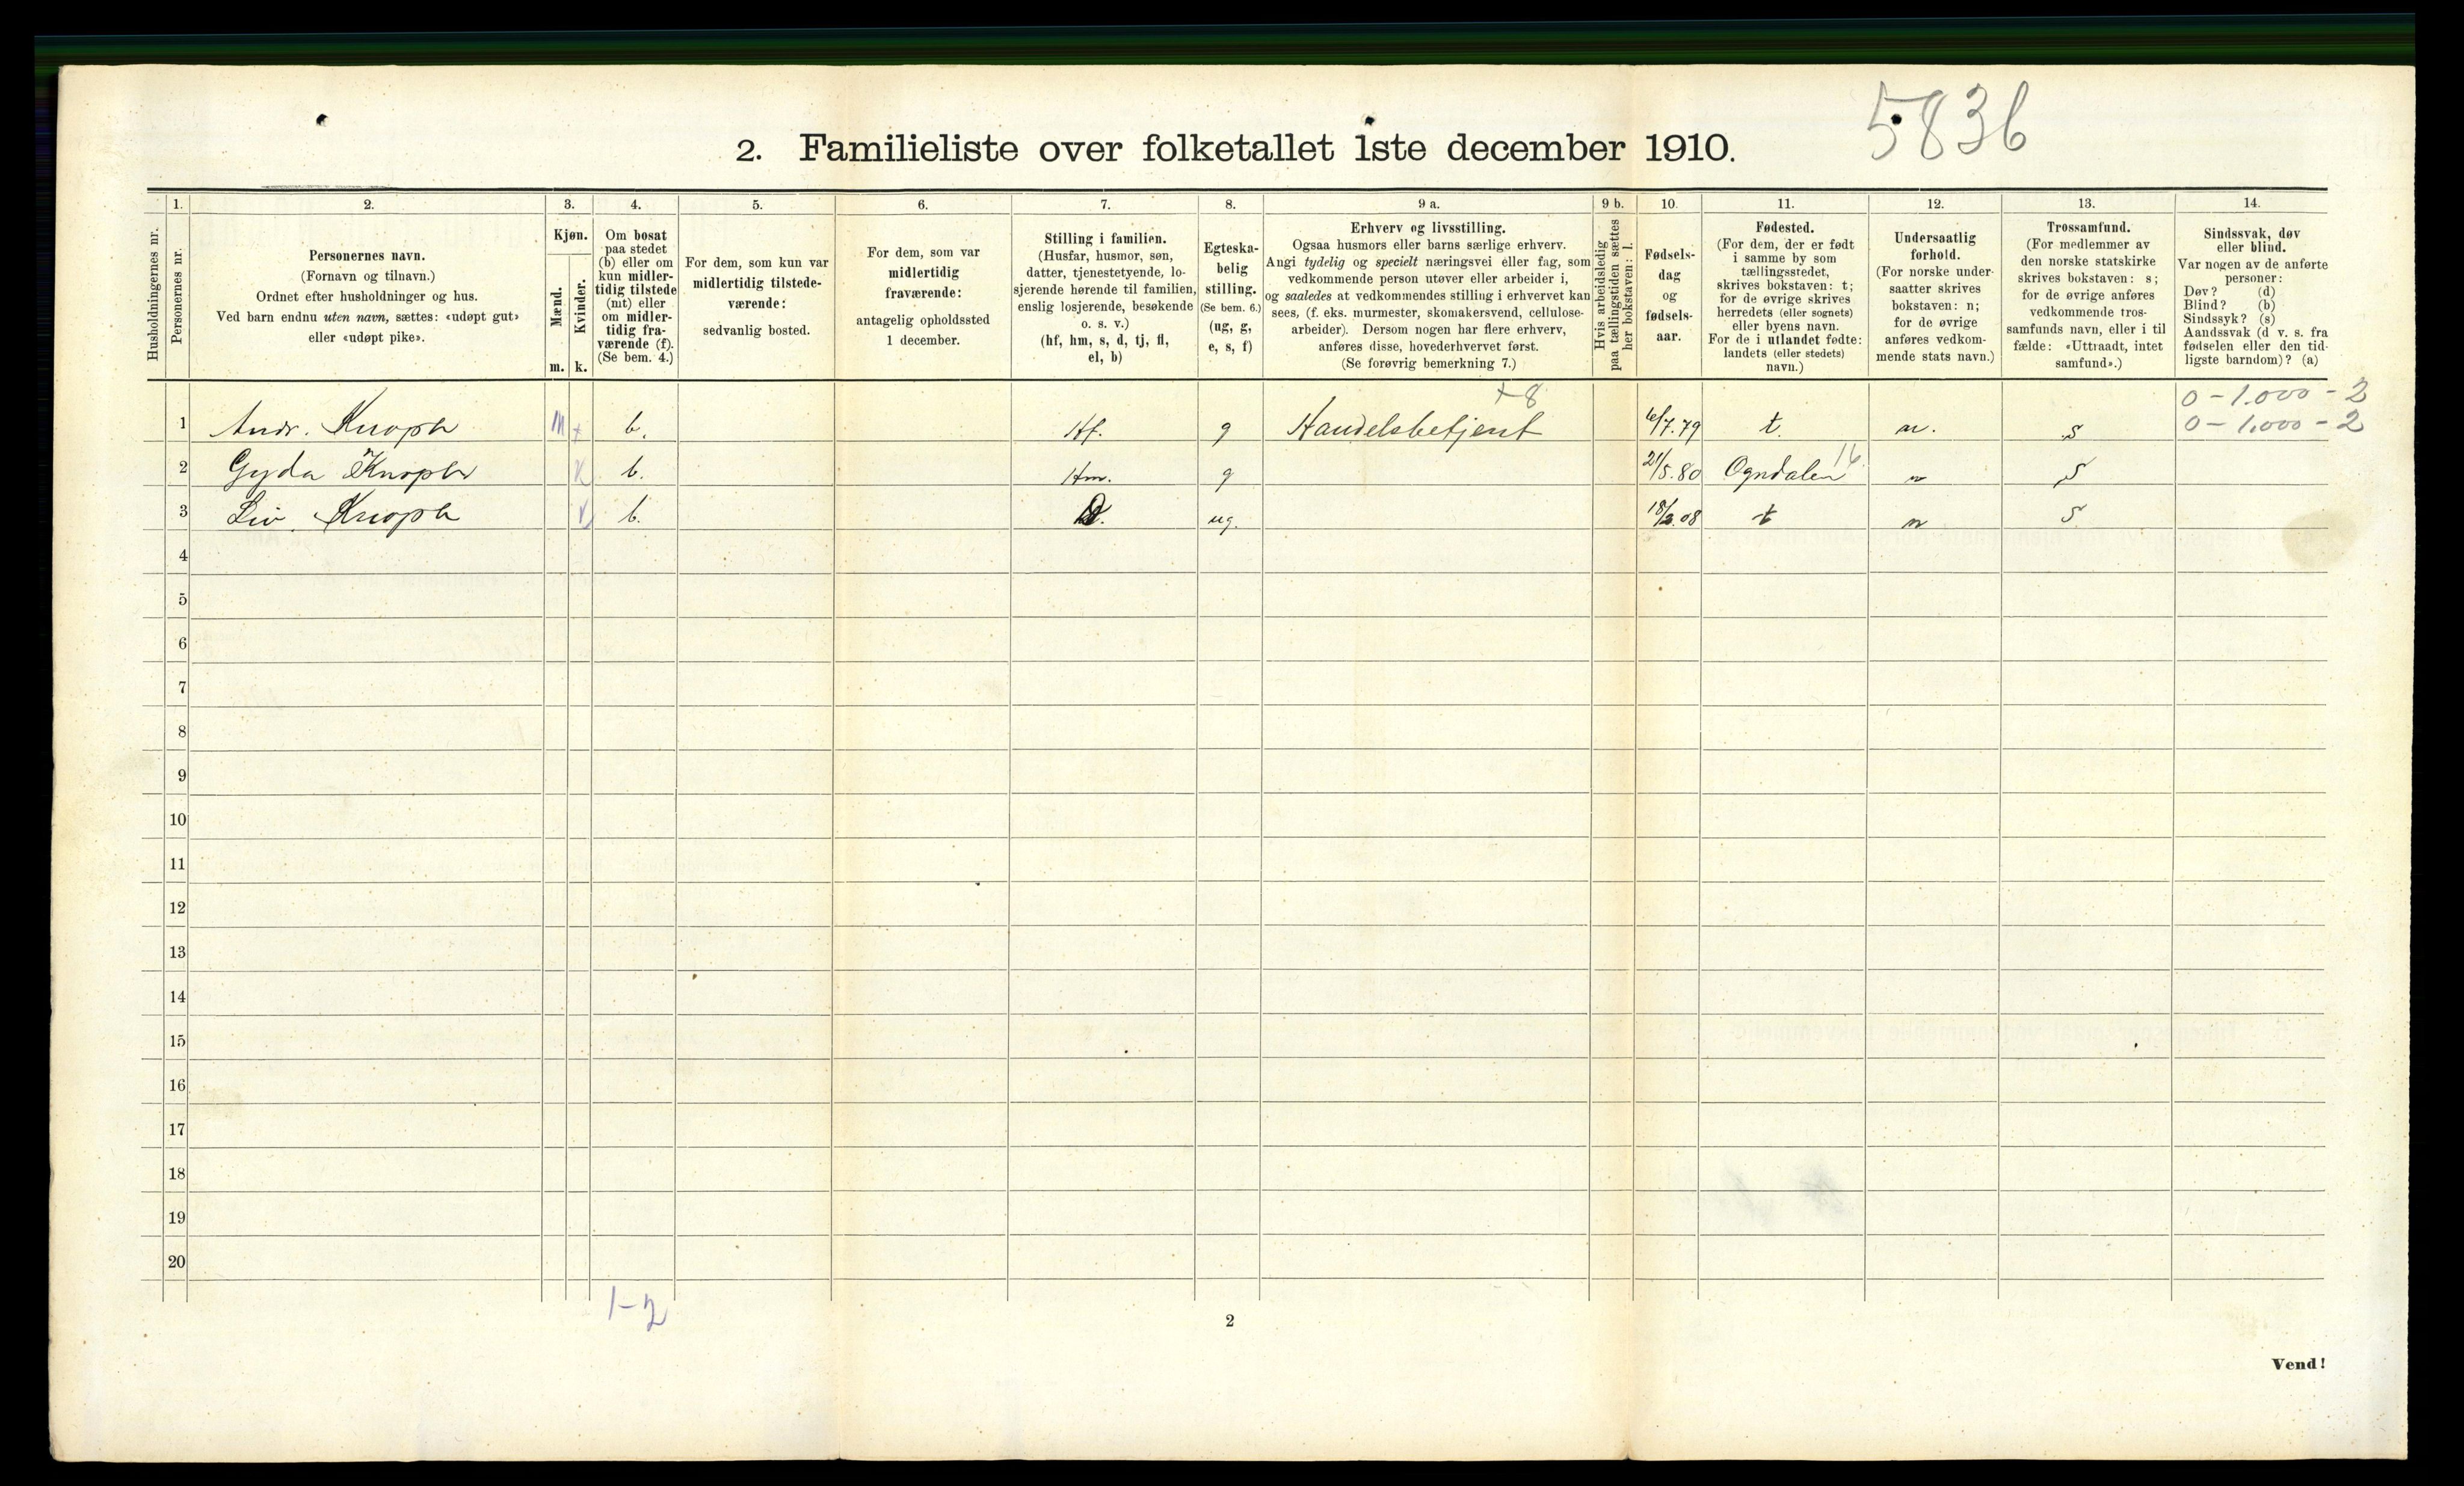 5836
2. Familieliste over folketallet 1ste december 1910.
Husholdningernes nr.
1.
Personernes nr.
2.
Personernes navn.
(Fornavn og tilnavn.)
Ordnet efter husholdninger og hus.
Ved barn endnu uten navn, sættes: «udøpt gut»
eller «udøpt pike».
3.
Kjøn.
Mænd.
Kvinder.
m. k.
4.
Om bosat
paa stedet
(b) eller om
kun midler-
tidig tilstede
(mt) eller
om midler-
tidig fra-
værende (f).
(Se bem. 4.)
5.
For dem, som kun var
midlertidig tilstede-
værende:
sedvanlig bosted.
6.
For dem, som var
midlertidig
fraværende:
antagelig opholdssted
1 december.
7.
Stilling i familien.
(Husfar, husmor, søn,
datter, tjenestetyende, lo-
sjerende hørende til familien,
enslig losjerende, besøkende
o. s. v.)
(hf, hm, s, d, tj, fl,
el, b)
8.
Egteska-
belig
stilling.
(Se bem. 6.)
(ug, g,
e, s, f)
9 a.
Erhverv og livsstilling.
Ogsaa husmors eller barns særlige erhverv.
Angi tydelig og specielt næringsvei eller fag, som
vedkommende person utøver eller arbeider i,
og saaledes at vedkommendes stilling i erhvervet kan
sees, (f. eks. murmester, skomakersvend, cellulose-
arbeider). Dersom nogen har flere erhverv,
anføres disse, hovederhvervet først.
(Se forøvrig bemerkning 7.)
9 b.
Hvis arbeidsledig
paa tællingstiden sættes
her bokstaven: l.
10.
Fødsels-
dag
og
fødsels-
aar.
11.
Fødested.
(For dem, der er født
i samme by som
tællingsstedet,
skrives bokstaven: t;
for de øvrige skrives
herredets (eller sognets)
eller byens navn.
For de i utlandet fødte:
landets (eller stedets)
navn.)
12.
Undersaatlig
forhold.
(For norske under-
saatter skrives
bokstaven: n;
for de øvrige
anføres vedkom-
mende stats navn.)
13.
Trossamfund.
(For medlemmer av
den norske statskirke
skrives bokstaven: s;
for de øvrige anføres
vedkommende tros-
samfunds navn, eller i til
fælde: «Uttraadt, intet
samfund».)
14.
Sindssvak, døv
eller blind.
Var nogen av de anførte
personer:
Døv? (d)
Blind? (b)
Sindssyk? (s)
Aandssvak (d v. s. fra
fødselen eller den tid-
ligste barndom)? (a)
+8
0 - 1.000 - 2
1 Andr. Knoph b. Hf. g Handelsbetjent 6/7.79 t. n. s 0 - 1.000 - 2
2 Gyda Knoph b. Hm. g 21/5.80 Ogndalen 16. n s
3 Liv. Knoph b. D. ug. 18/3.08 t n s
4
5
6
7
8
9
10
11
12
13
14
15
16
17
18
19
20
1-2
2
Vend!